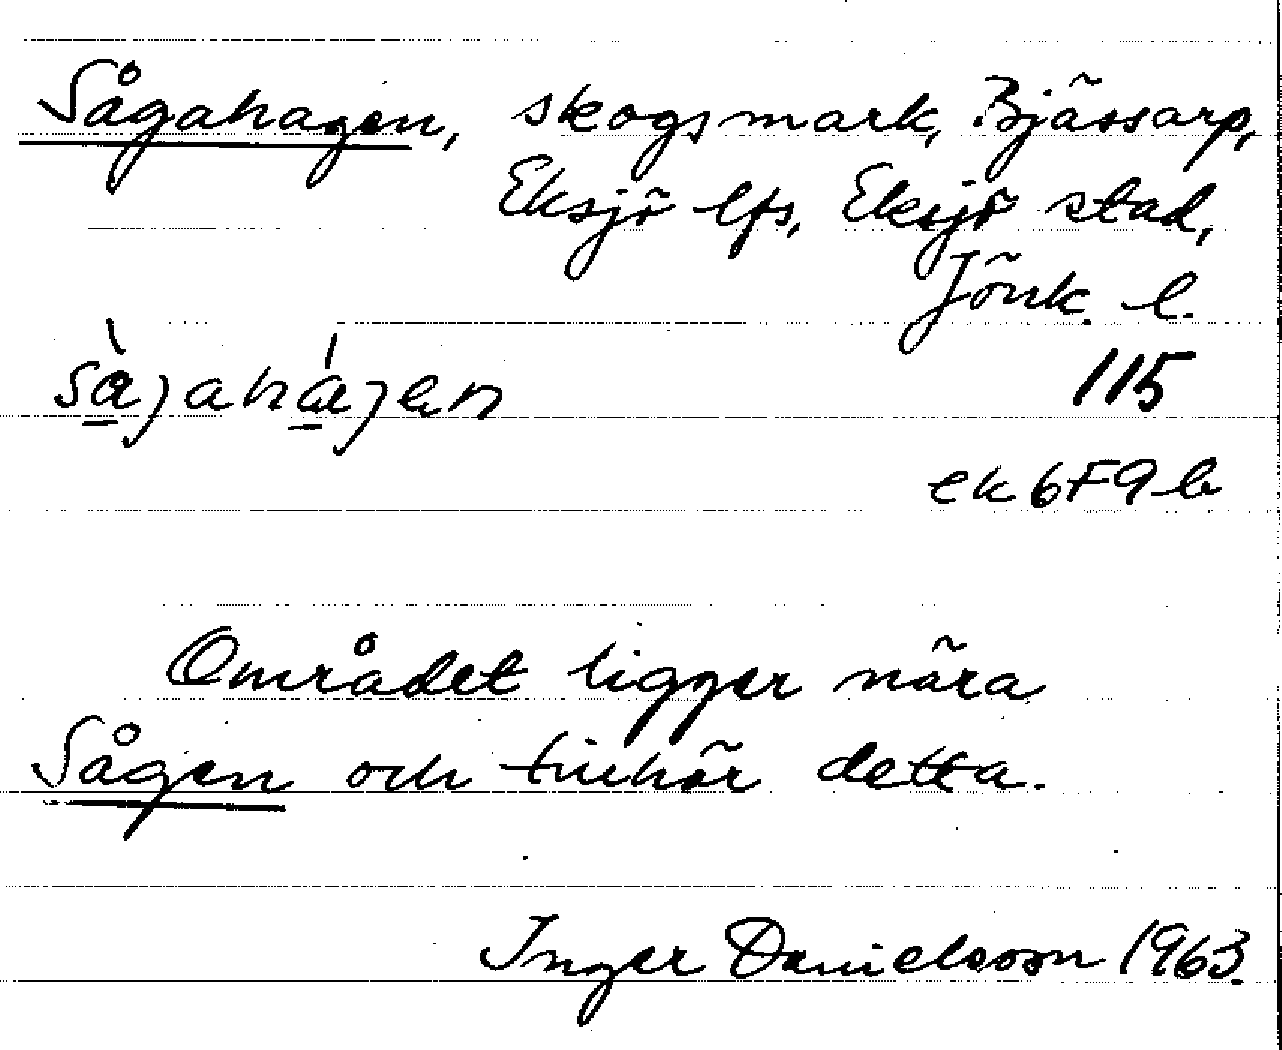 Sågahagen, skogsmark, Bjässarp,
Eksjö lfs, Eksjö stad,
Jönk. l.
sàgahágen 115
ek 6F9b
Området ligger nära
Sågen och tillhör detta.
Inger Danielsson 1963.